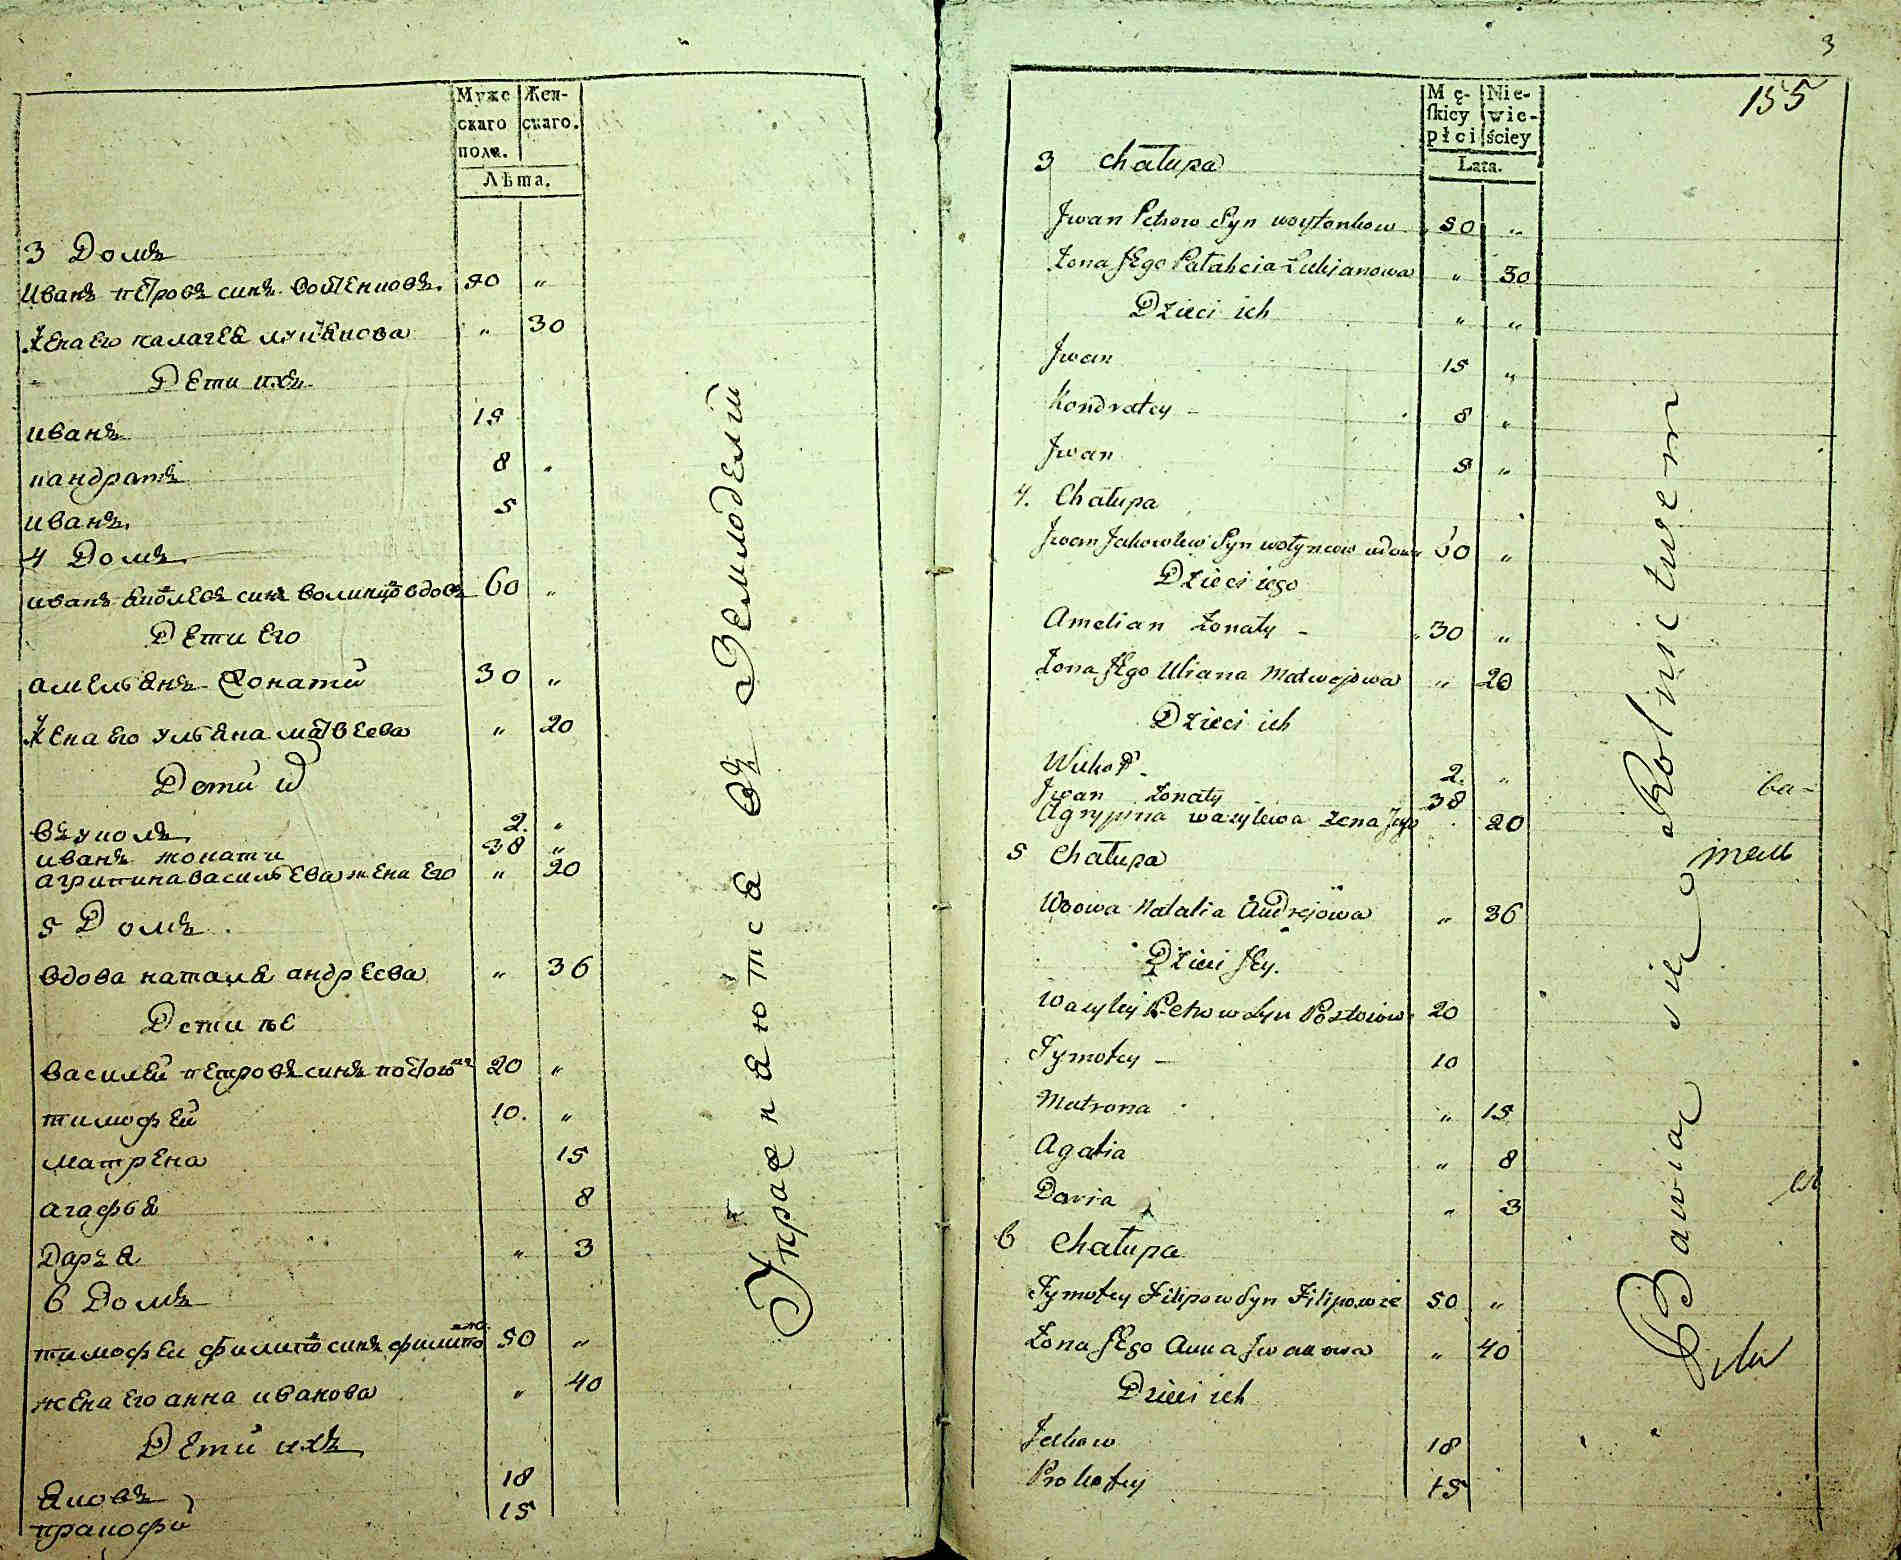 Мужс Жен-
скаго скаго.
полѧ.
Лѣта.
3 Домъ
Иванъ петровъ синъ войтенковъ. 50 "
Жена его палагея лукянова " 30
Дети ихъ
иванъ 15
кандратъ 8 "
иванъ 5
4 Домъ
иванъ яковлевъ синъ волинцо вдовъ 60 "
Дети Его
амельянъ жонати 30 "
Жена его ульяна матвеева " 20
Дети
вуколъ 2. "
иванъ жонати 38 "
агрипина василъева жена его " 20
5 Домъ
вдова наталя андреева " 36
Дети
василей петровъ синъ 20 "
тимофей 10. "
матрена 15
агафья 8
Даръя " 3
6 Домъ
тимофеи синъ 50 "
жена его анна иванова " 40
Дети ихъ
яковъ 18
пракофи 15
Упражняются въ Землоделии
3
155
Mę- Nie-
skiey wie-
płci ściey
Lata.
3 Chałupa
Jwan Petrow Syn woytenkow 50 "
Żona Jego Palaheia Lukianowa " 30
Dzieci ich " "
Jwan 15 "
Kondratey 8 "
Jwan 5 "
4. Chałupa
Jwan Jakowlew Syn wołyncow wdow 60 "
Dzieci iego
Amelian Żonaty 30 "
Żona Jego Uliana Matwejowa " 20
Dzieci ich
Wukoł 2. "
Jwan Żonaty 38
Agrypina wasylewa Żona Jego 20
5 Chałupa
Wdowa Natalia Andrejowa " 36
Dzieci Jey.
Wasyley Petrow Syn 20
Tymofey 10
Matrona " 15
Agafia " 8
Daria " 3
6 Chałupa
Tymofey Filipow Syn 50 "
Żona Jego Anna Jwanowa " 40
Dzieci ich
Jakow 18
Prokofey 15
Bawią się Rolnictwem